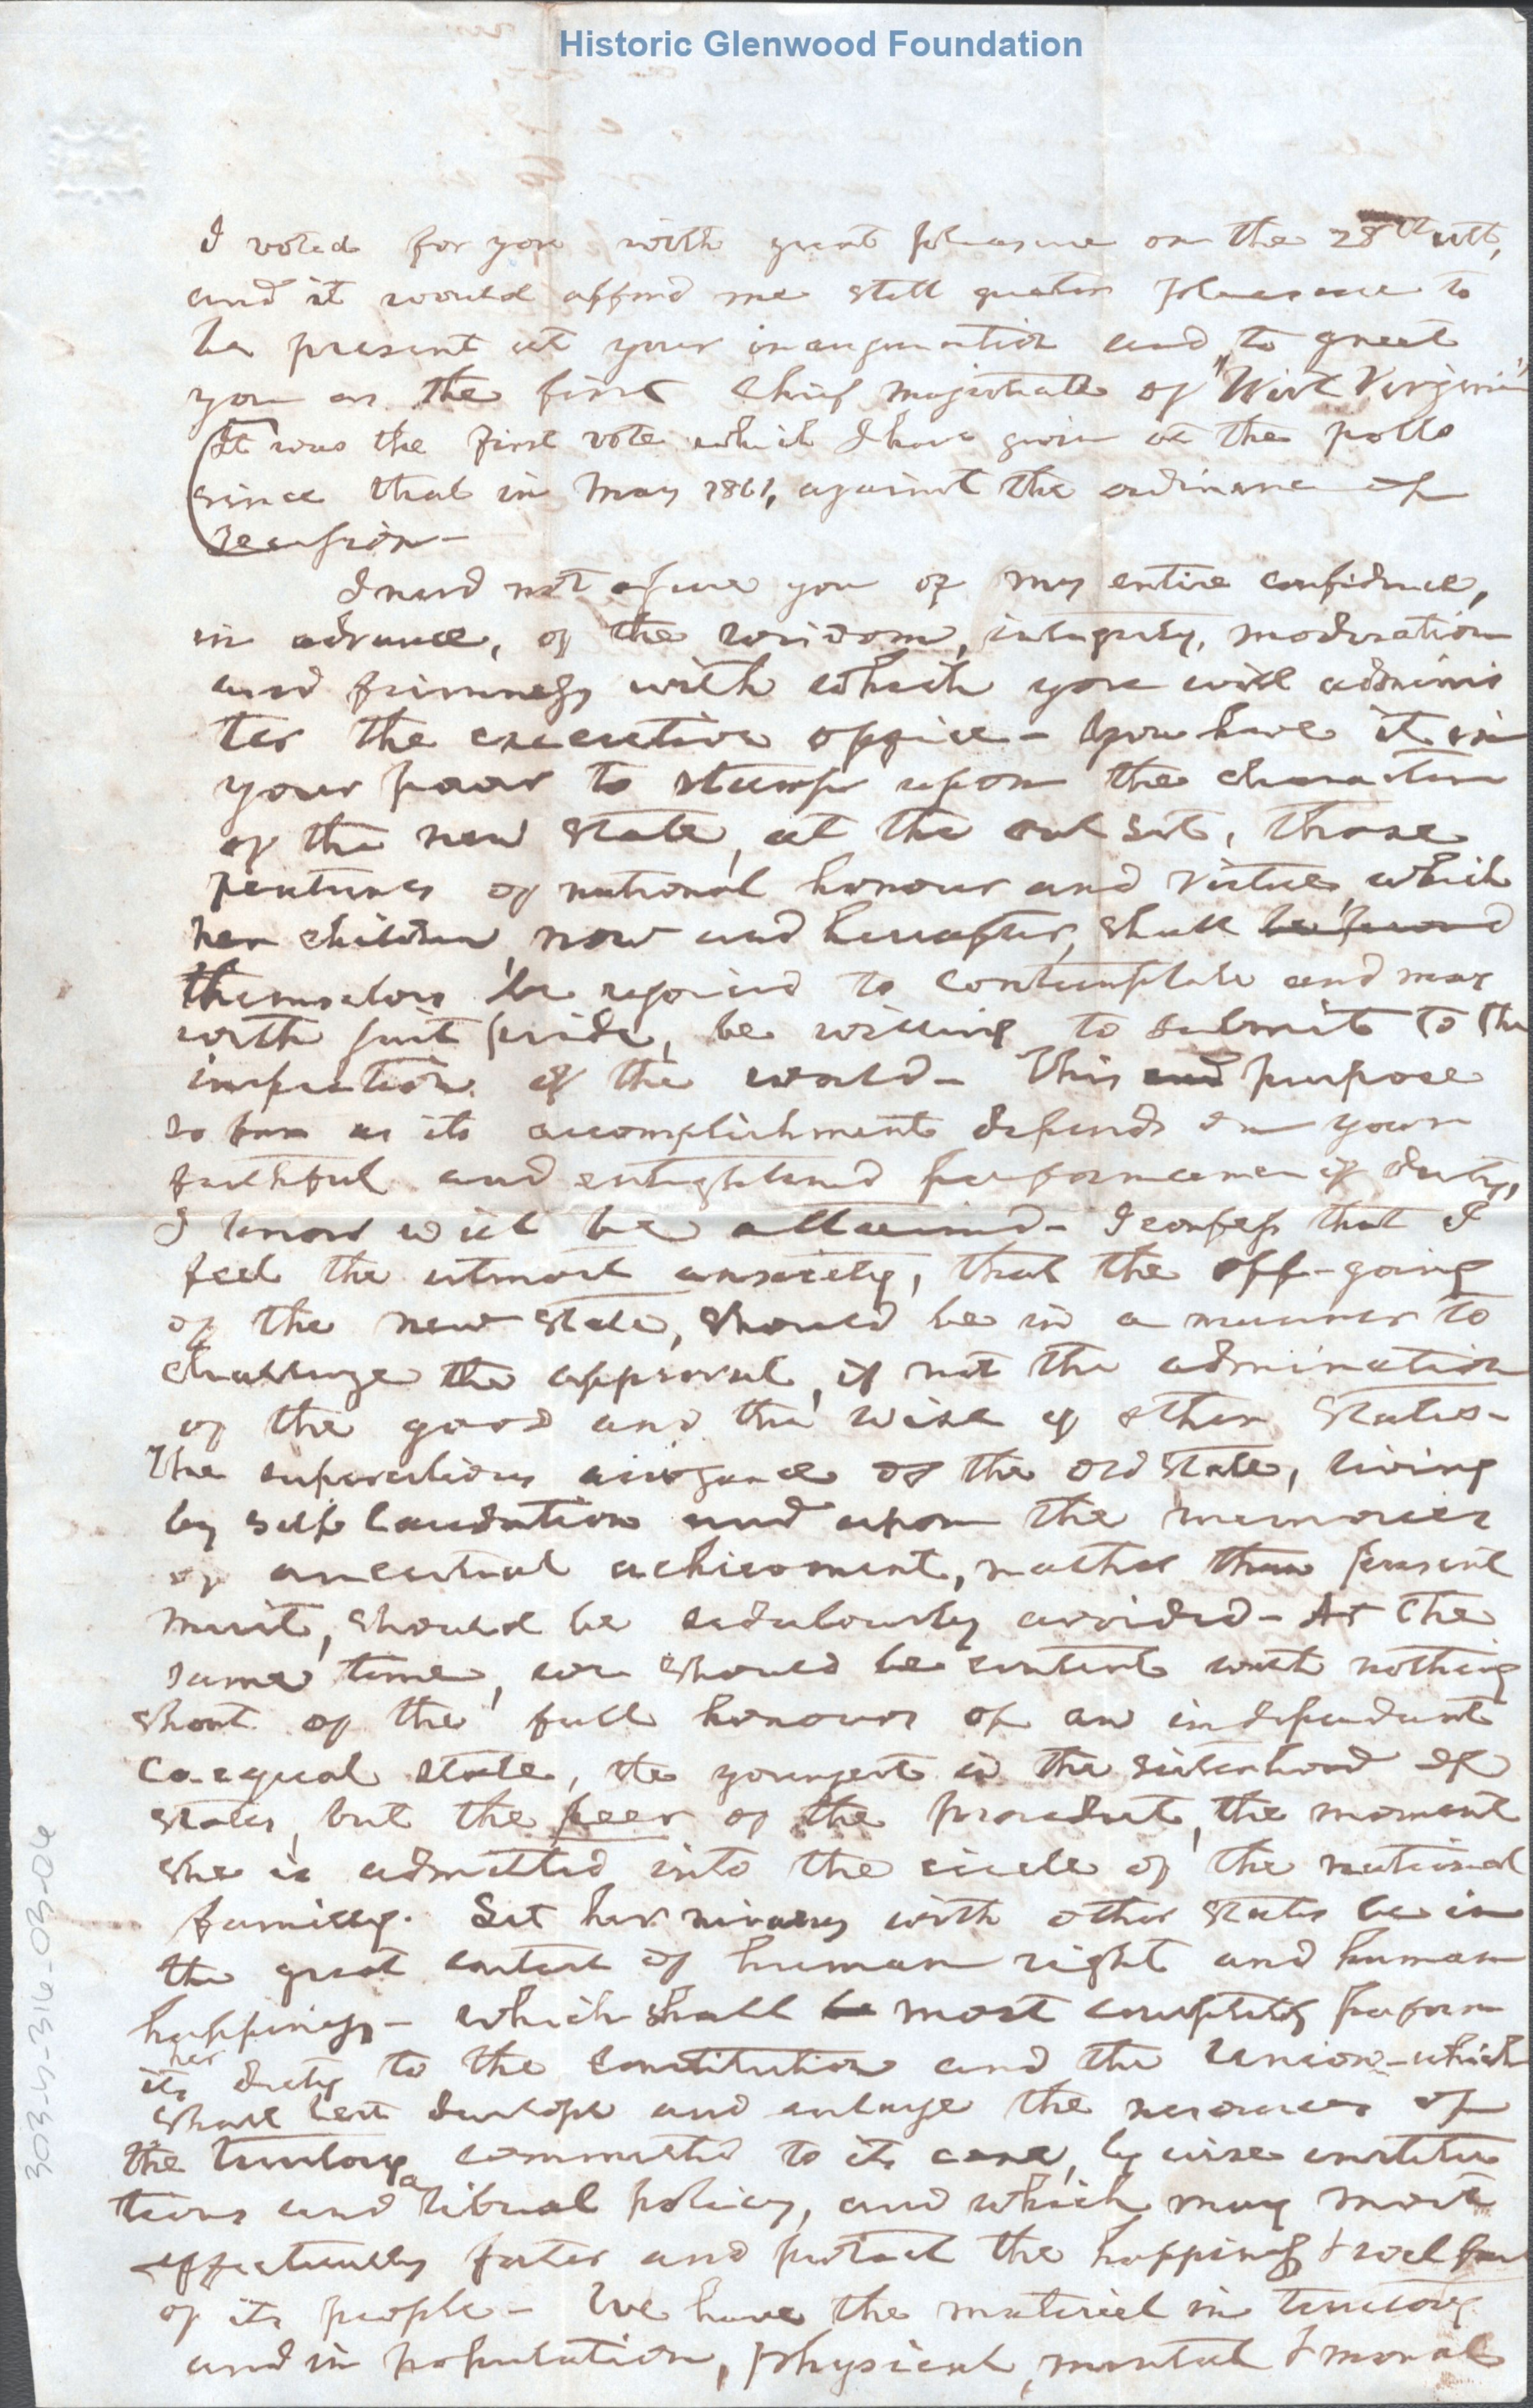 Historic Glenwood Foundation
I voted for you with great pleasure on the 28th ult,
and it would afford me still greater pleasure to
be present at your inauguration and to greet
you as the first chief magistrate of "West Virginia"
(It was the first vote which I have given at the polls
since that in May 1861, against the ordinance of
secession-
I need not assure you of my entire confidence,
in advance, of the wisdom, integrity, moderation
and firmness with which you will adminis
ter the executive office - You have it in
your power to stamp upon the character
of the new state, at the outset, those
features of national honour and virtue, which
her children, now and hereafter, shall be proud
themselves be rejoiced to contemplate and may
with just pride, be willing to submit to the
inspection of the world - This end purpose
so far as its accomplishment depends on your
faithful and enlightened performance of duty,
I know will be attained - I confess that I
feel the utmost anxiety, that the off-going
of the new state, should be in a manner to
challenge the approval, if not the admiration
of the good and the wise of other States-
The supercilious arrogance of the old state, living
by self laudation and upon the memories
of ancestral achievement, rather than present
merit, should be sedulously avoided - At the
same time, we should be content with nothing
short of the full honours of an independent
Co-equal state, the youngest in the sisterhood of
states, but the peer of the proudest, the moment
she is admitted into the circle of the national
family. Let her rivalry with other states be in
the great contest of human right and human
happiness - which shall be most completely perform
its her duty to the Constitution and the Union - which
shall best develope and enlarge the resources of
the territory committed to its care, by wise institu
tions and a liberal policy, and which may most
effectually foster and protect the happiness & welfare
of its people - We have the material in territory
and in population, physical, mental & moral
303-S-316-03-06